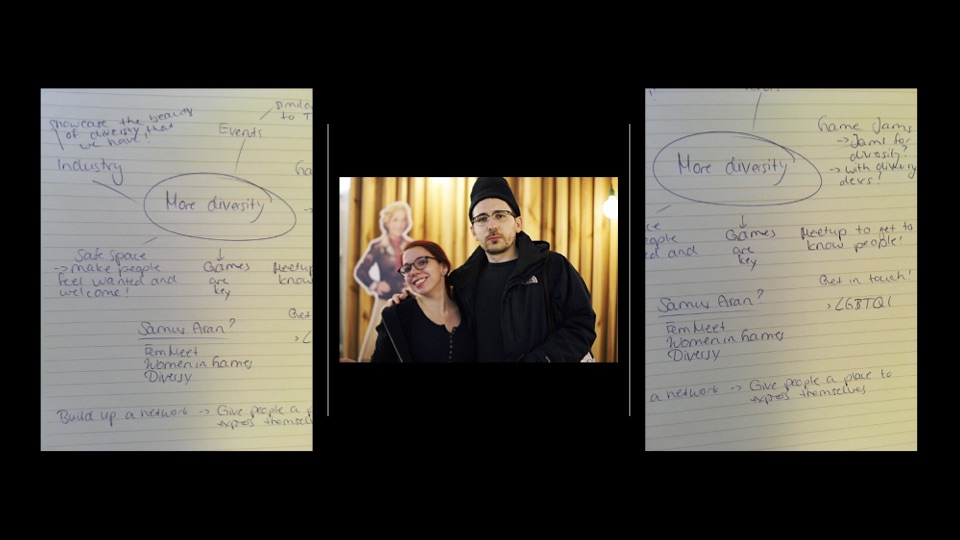 showcase the beauty
of diversity that
we have!
Industry
Events
More diversity
Safe space
→ make people
feel wanted and
welcome!
↓
Games
are
key
Meetup
know
Samus Aran?
FemMeet
Women in Games
Diversy
Build up a network → Give people a
express themsel
More diversity
Game Jams
→ Jams for
diversity?
→ with diversy
devs!
↓
Games
are
key
Meetup to get to
know people!
Get in touch!
> LGBTQI
Samus Aran?
FemMeet
Women in Games
Diversy
a network → Give people a place to
express themselves